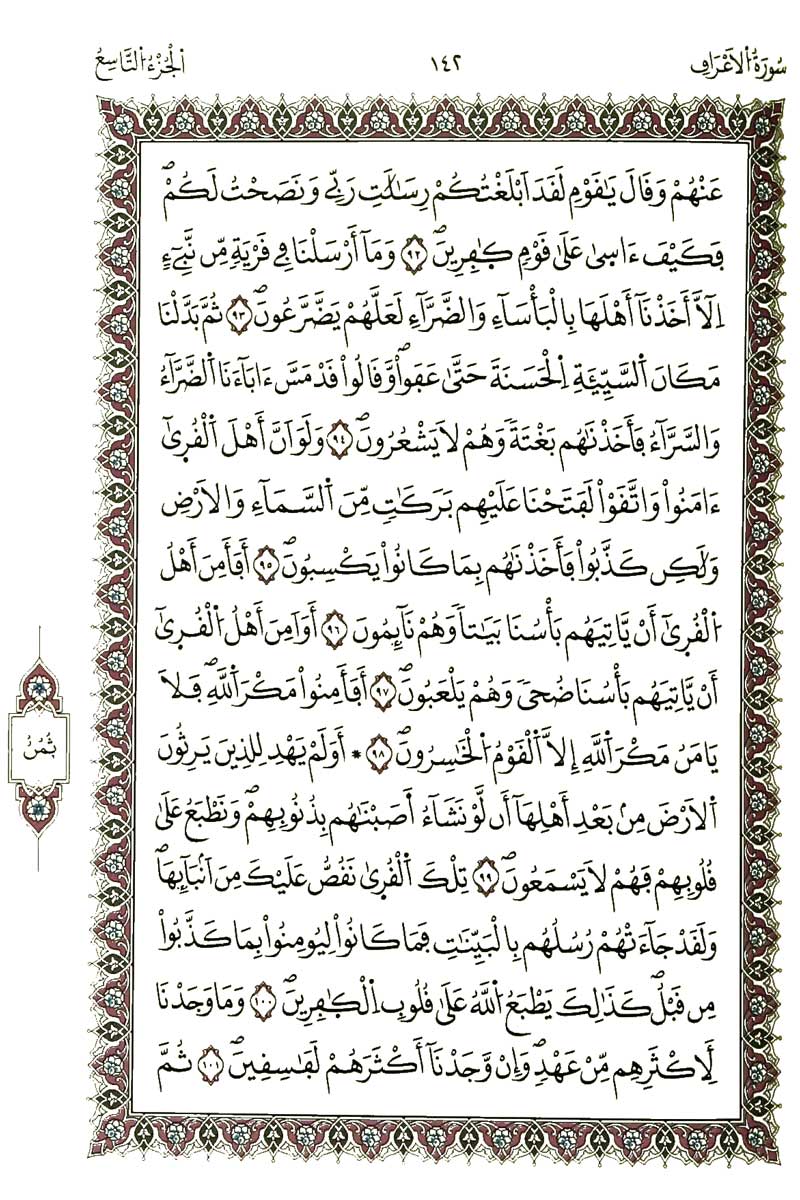 سُورَةُ اُلَاعْرَافِ
١٤٢
اَلْجُزْءُ اُلتَّاسِعُ
عَنْهُمْ وَقَالَ يَٰقَوْمِ لَقَدَ اَبْلَغْتُكُمْ رِسَٰلَٰتِ رَبِّے وَنَصَحْتُ لَكُمْ
فَكَيْفَ ءَاس۪يٰ عَلَيٰ قَوْمٖ كٰ۪فِرِينَۖ ٩٢ وَمَآ أَرْسَلْنَا فِے قَرْيَةٖ مِّن نَّبِےٓءٍ
اِلَّآ أَخَذْنَآ أَهْلَهَا بِالْبَأْسَآءِ وَالضَّرَّآءِ لَعَلَّهُمْ يَضَّرَّعُونَۖ ٩٣ ثُمَّ بَدَّلْنَا
مَكَانَ اَ۬لسَّيِّئَةِ اِ۬لْحَسَنَةَ حَتَّيٰ عَفَواْۖ وَّقَالُواْ قَدْ مَسَّ ءَابَآءَنَا اَ۬لضَّرَّآءُ
وَالسَّرَّآءُ فَأَخَذْنَٰهُم بَغْتَةٗ وَهُمْ لَا يَشْعُرُونَۖ ٩٤ وَلَوَ اَنَّ أَهْلَ اَ۬لْقُر۪يٰٓ
ءَامَنُواْ وَاتَّقَوْاْ لَفَتَحْنَا عَلَيْهِم بَرَكَٰتٖ مِّنَ اَ۬لسَّمَآءِ وَالَارْضِ
وَلَٰكِن كَذَّبُواْ فَأَخَذْنَٰهُم بِمَا كَانُواْ يَكْسِبُونَۖ ٩٥ أَفَأَمِنَ أَهْلُ
اُ۬لْقُر۪يٰٓ أَنْ يَّاتِيَهُم بَأْسُنَا بَيَٰتاٗ وَهُمْ نَآئِمُونَ ٩٦ أَوَ اَمِنَ أَهْلُ اُ۬لْقُر۪يٰٓ
أَنْ يَّاتِيَهُم بَأْسُنَا ضُحيٗ وَهُمْ يَلْعَبُونَۖ ٩٧ أَفَأَمِنُواْ مَكْرَ اَ۬للَّهِۖ فَلَا
يَامَنُ مَكْرَ اَ۬للَّهِ إِلَّا اَ۬لْقَوْمُ اُ۬لْخَٰسِرُونَۖ ٩٨ * أَوَلَمْ يَهْدِ لِلذِينَ يَرِثُونَ
اَ۬لَارْضَ مِنۢ بَعْدِ أَهْلِهَآ أَن لَّوْ نَشَآءُ اَ۬صَبْنَٰهُم بِذُنُوبِهِمْۖ وَنَطْبَعُ عَلَيٰ
قُلُوبِهِمْ فَهُمْ لَا يَسْمَعُونَۖ ٩٩ تِلْكَ اَ۬لْقُر۪يٰ نَقُصُّ عَلَيْكَ مِنَ اَنۢبَآئِهَاۖ
وَلَقَدْ جَآءَتْهُمْ رُسُلُهُم بِالْبَيِّنَٰتِ فَمَا كَانُواْ لِيُومِنُواْ بِمَا كَذَّبُواْ
مِن قَبْلُۖ كَذَٰلِكَ يَطْبَعُ اُ۬للَّهُ عَلَيٰ قُلُوبِ اِ۬لْكٰ۪فِرِينَۖ ١٠٠ وَمَا وَجَدْنَا
لِأَكْثَرِهِم مِّنْ عَهْدٖۖ وَإِنْ وَّجَدْنَآ أَكْثَرَهُمْ لَفَٰسِقِينَۖ ١٠١ ثُمَّ
ثُمُنُ